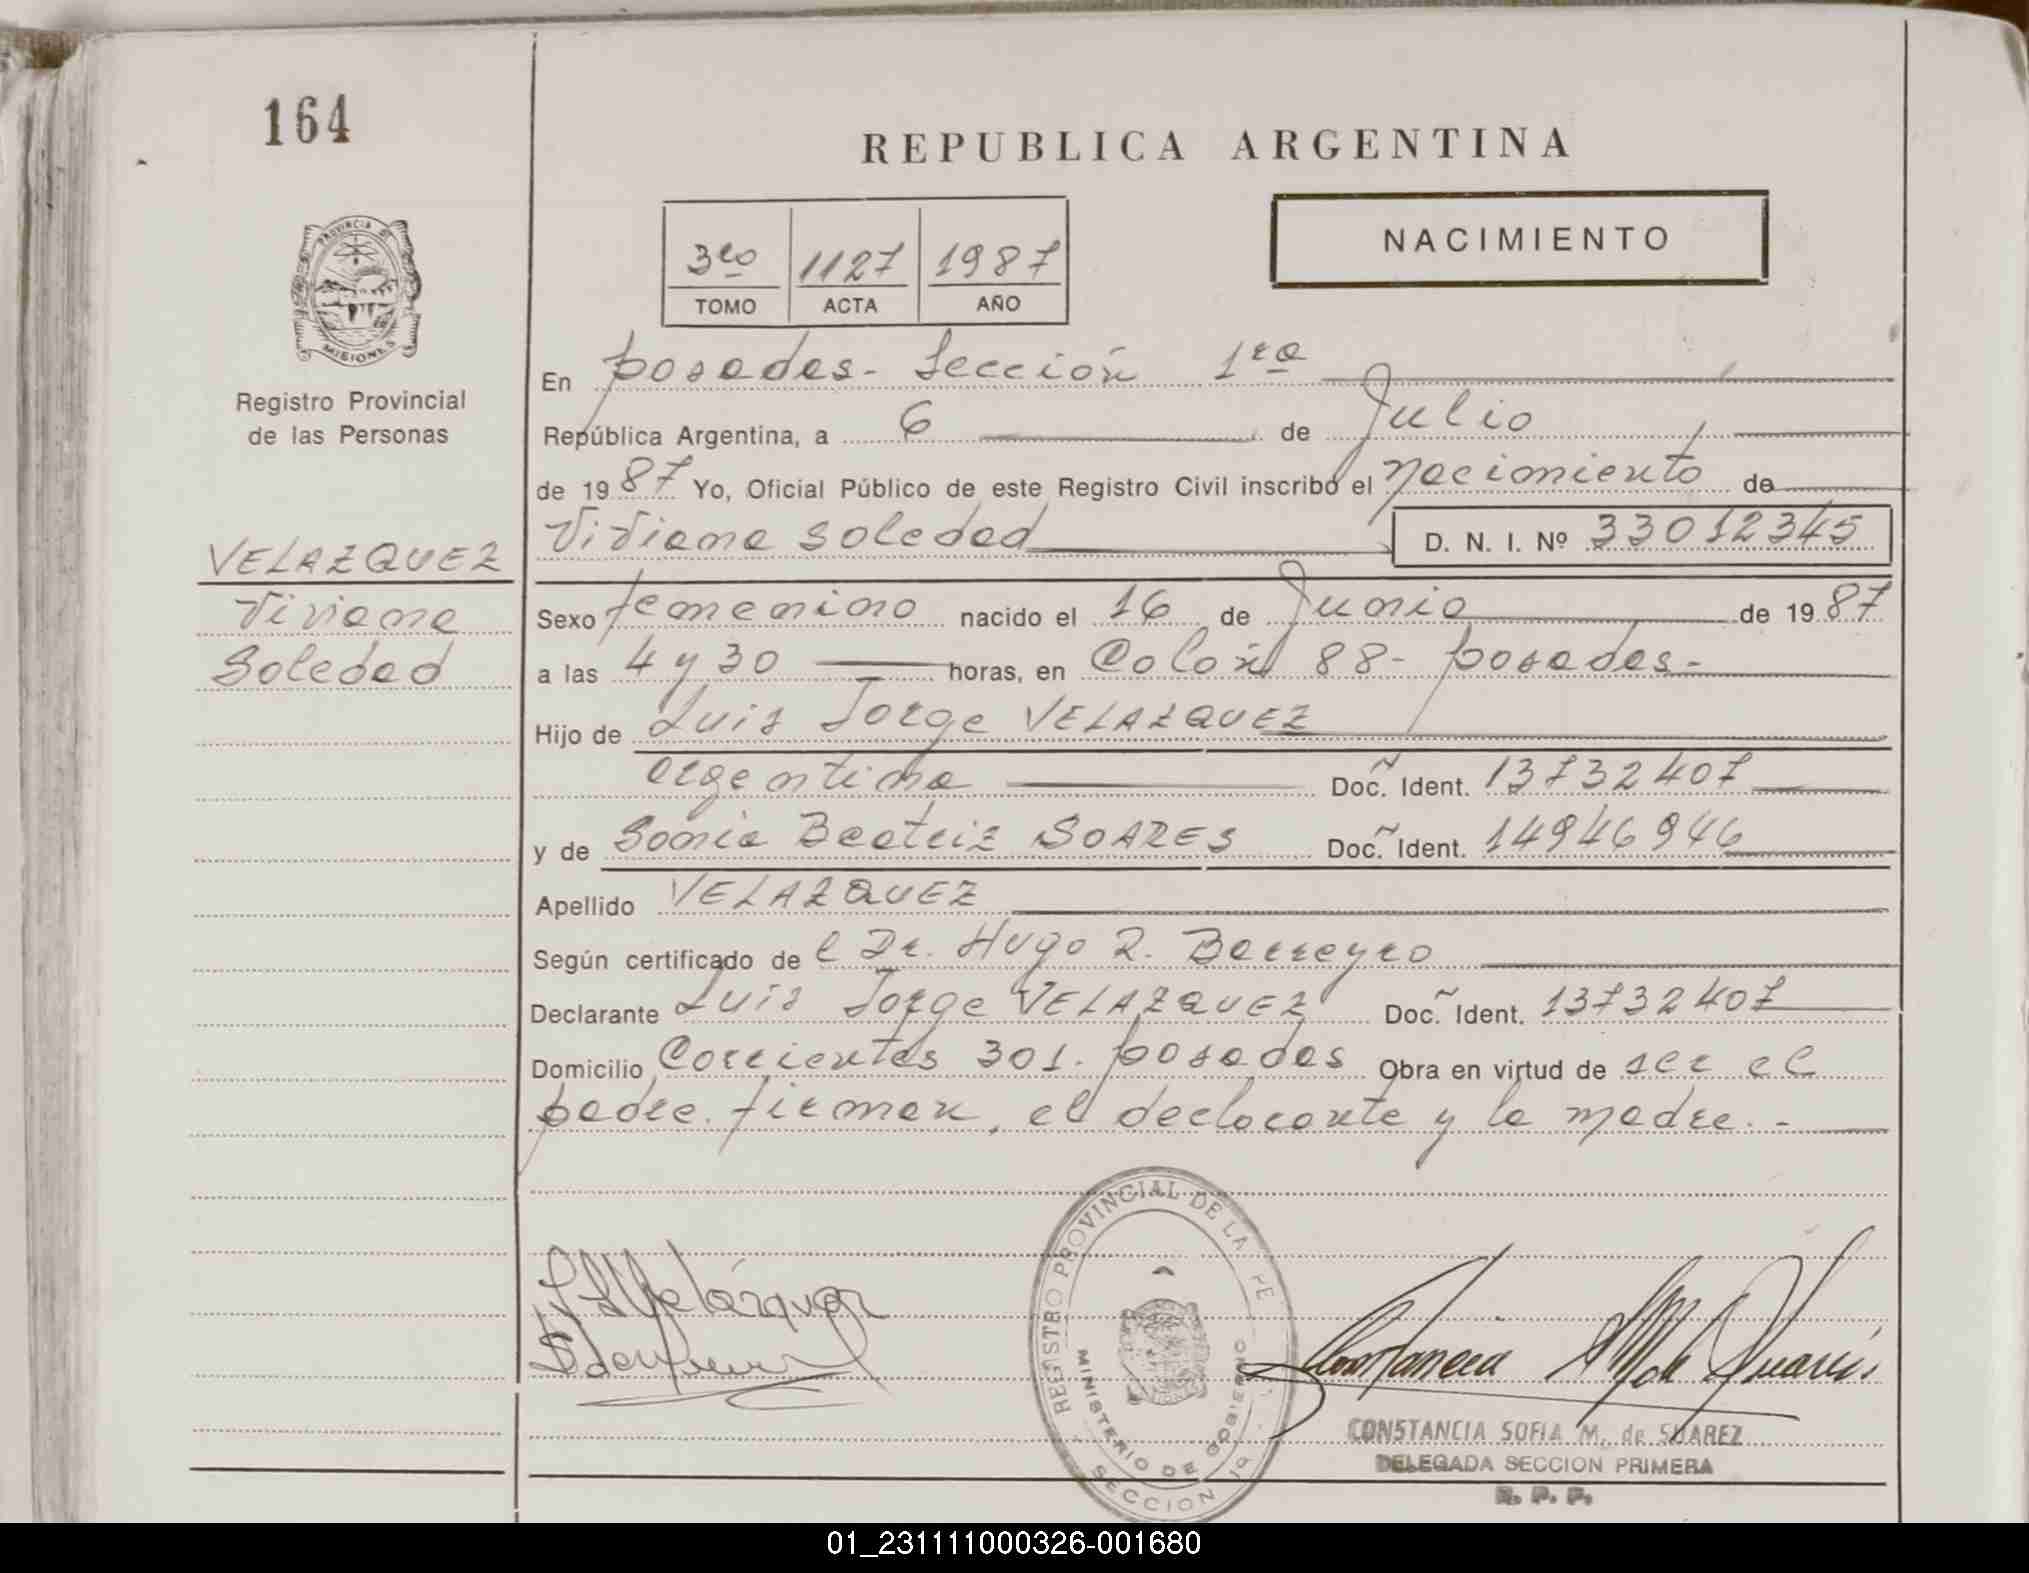 164
REPUBLICA ARGENTINA
3ro 1127 1987
TOMO ACTA AÑO
NACIMIENTO
PROVINCIA DE
MISIONES
Registro Provincial
de las Personas
VELAZQUEZ
Viviana
Soledad
En Posadas - Sección 1ra
República Argentina, a 6 de Julio
de 1987 Yo, Oficial Público de este Registro Civil inscribo el nacimiento de
Viviana Soledad D. N. I. Nº 33012345
Sexo femenino nacido el 16 de Junio de 1987
a las 4 y 30 horas, en Colón 88 - Posadas -
Hijo de Luis Jorge VELAZQUEZ
argentina Doc. Ident. 13732407
y de Sonia Beatriz SOARES Doc. Ident. 14946946
Apellido VELAZQUEZ
Según certificado del Dr. Hugo R. Barreyro
Declarante Luis Jorge VELAZQUEZ Doc. Ident. 13732407
Domicilio Corrientes 301. Posadas Obra en virtud de ser el
padre. firman, el declarante y la madre. -
REGISTRO PROVINCIAL DE LA PE
MINISTERIO DE GOBIERNO
SECCION 1a
Velázquez
Constancia M de Suarez
CONSTANCIA SOFIA M. de SUAREZ
DELEGADA SECCION PRIMERA
R. P. P.
01_231111000326-001680